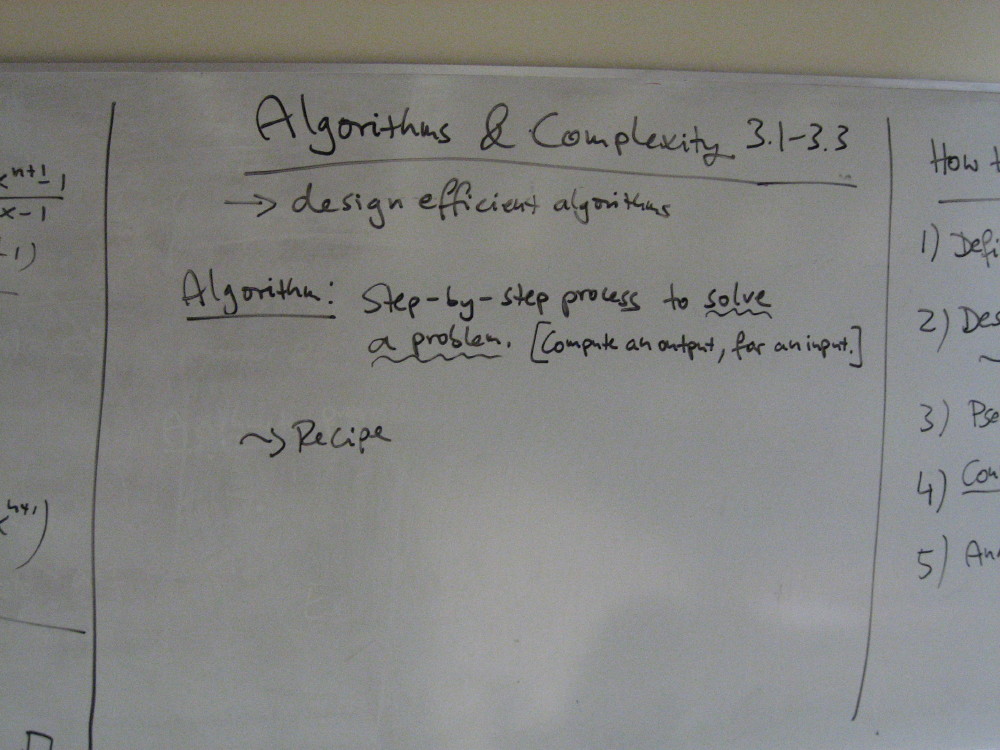 x^n+1 - 1
x - 1
-1)
x^n+1)
Algorithms & Complexity 3.1-3.3
→ design efficient algorithms
Algorithm: Step-by-step process to solve
a problem. [Compute an output, for an input.]
~> Recipe
How t
1) Defi
2) Des
3) Pse
4) Con
5) An